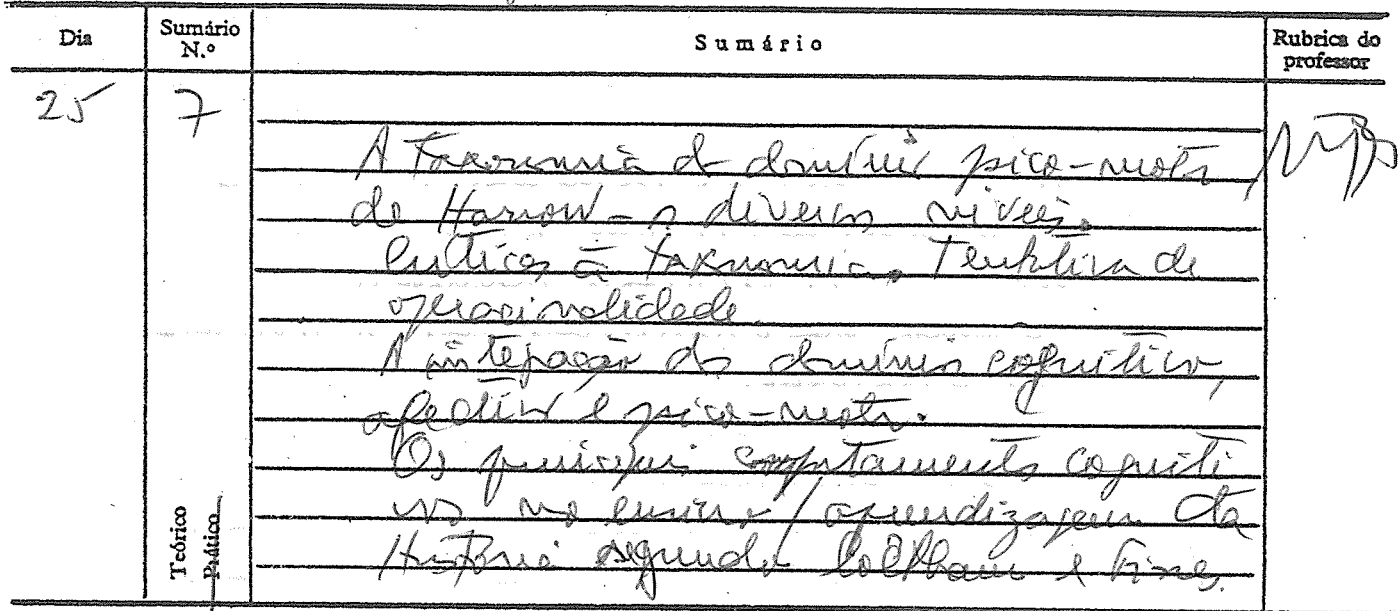 Dia
Sumário N.º
Sumário
Rubrica do professor
25
7
A Taxonomia do domínio psico-motor
de Harrow - os diversos níveis.
Críticas à taxonomia. Tentativa de
operacionalidade.
A integração do domínio cognitivo,
afectivo e psico-motor.
Os principais comportamentos cogniti
vos no ensino / aprendizagem da
História segundo Coltham e Fines.
Teórico
Prático